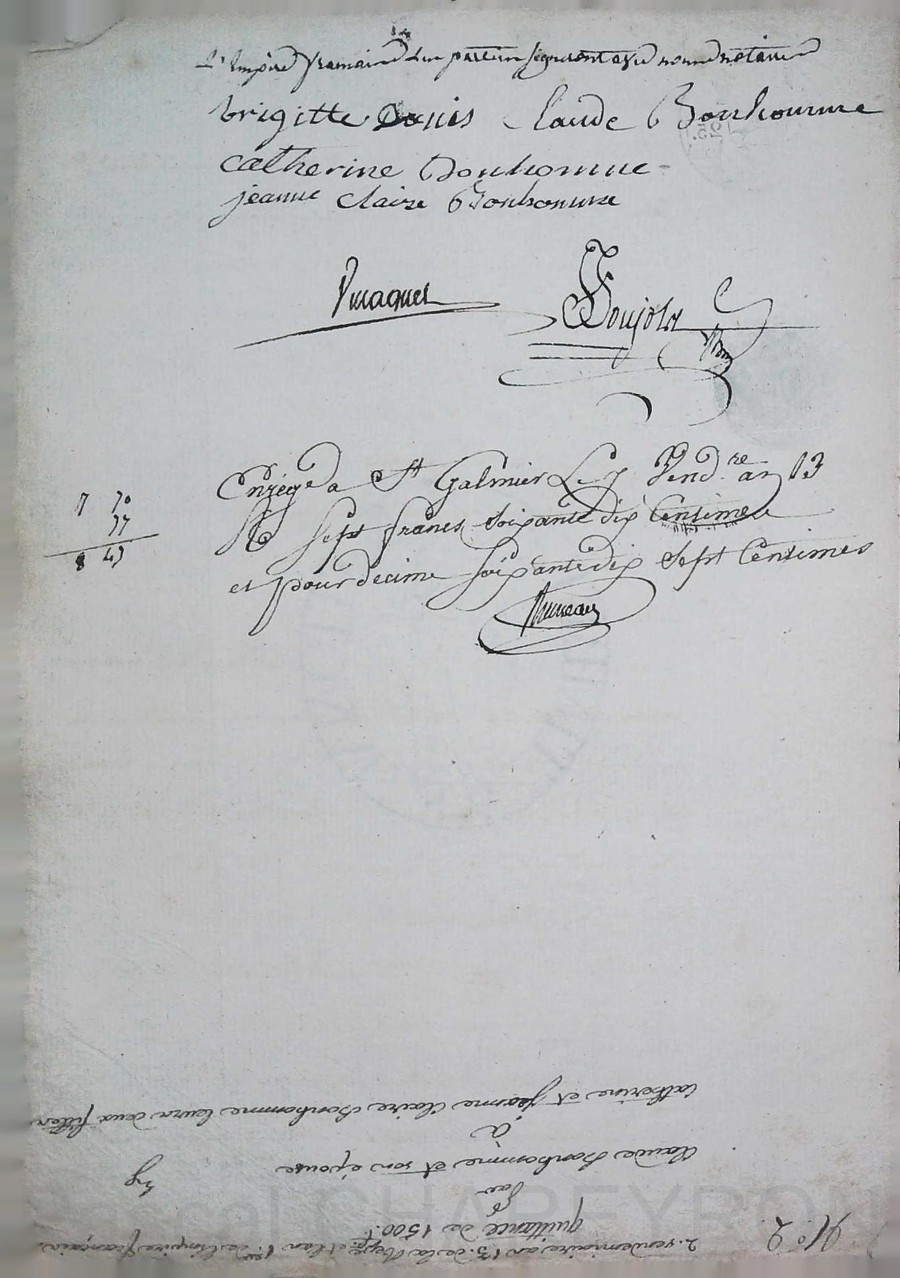 L'Empire francais les parties signeront avec nous notaires
brigitte Denis Claude Bonhomme
catherine Bonhomme
jeanne Claire Bonhomme
Ponjols
Enregé a St Galmier Le 7 Vendre an 13
7 70
77
8 47
R sept francs Soixante dix Centimes
et pour decime soixante dix sept Centimes
Bruneau
No 2.
2. vendemiaire an 13. de la Rep. et l'an 1er de l'empire francais
quittance de 1500 f
par
Claude Bonhomme et son épouse
à
Catherine et jeanne Claire Bonhomme leurs deux filles
CHAPEYRON